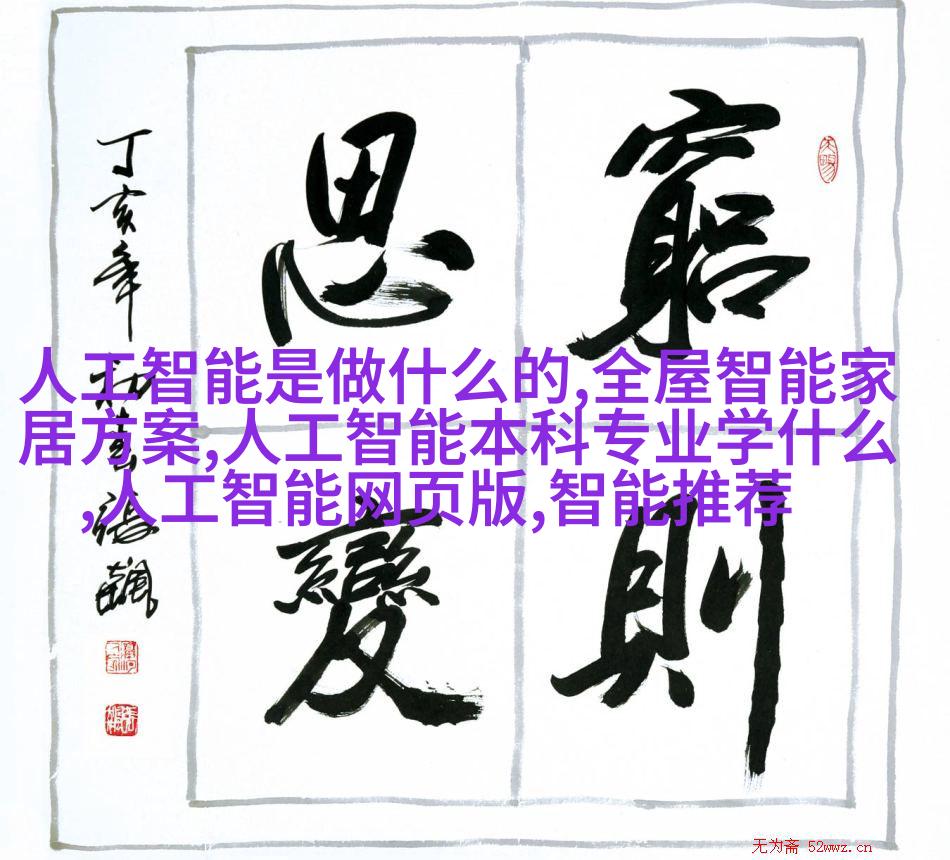 窮則
思變
丁亥年
張飆
人工智能是做什么的,全屋智能家
居方案,人工智能本科专业学什么
,人工智能网页版,智能推荐
无为斋 52wwz.cn